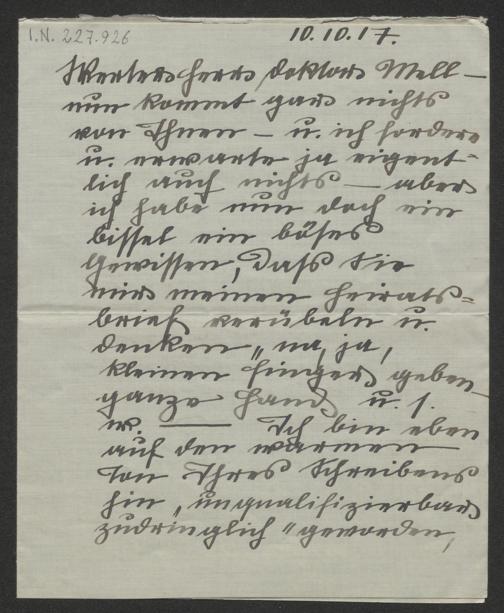 I.N. 227.926
10.10.17.
Werter Herr Doktor Mell –
nun kommt gar nichts
von Ihnen – u. ich fordere
u. erwarte ja eigent-
lich auch nichts – aber
ich habe nun doch ein
bissel ein böses
Gewissen, dass Sie
mir meinen Heirats-
brief verübeln u.
denken „na, ja,
kleinen Finger geben
ganze Hand u. s.
w. — Ich bin eben
auf den warmen
Ton Ihres Schreibens
hin „unqualifizierbar
zudringlich" geworden,